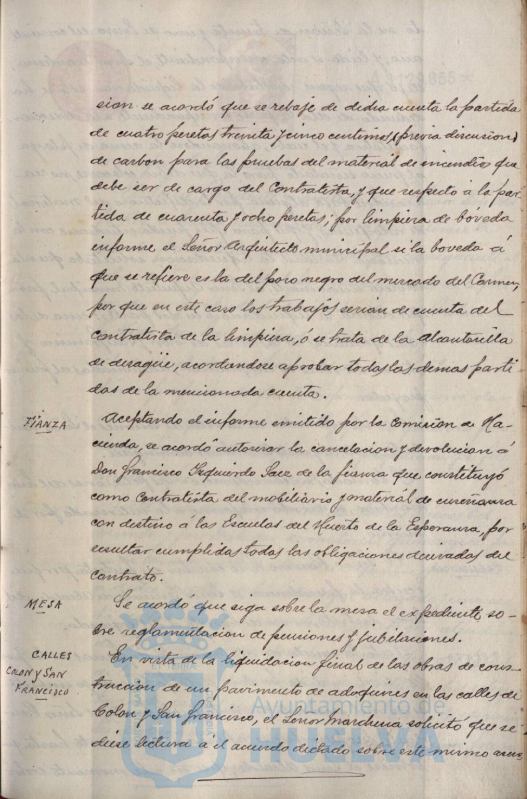 sion se acordó que se rebaje de dicha cuenta la partida
de cuatro pesetas treinta y cinco centimos, (previa discusion)
de carbon para las pruebas del material de incendio que
debe ser de cargo del Contratista, y que respecto á la par-
tida de cuarenta y ocho pesetas, por limpieza de bóveda
informe el Señor Arquitecto municipal si la boveda á
que se refiere es la del pozo negro del mercado del Carmen,
por que en este caso los trabajos serian de cuenta del
contratista de la limpieza, ó se trata de la alcantarilla
de desagüe, acordandose aprobar todas las demas parti-
das de la mencionada cuenta.
FIANZA
Aceptando el informe emitido por la Comision de Ha-
cienda, se acordó autorizar la cancelacion y devolucion á
Don Francisco Izquierdo Saez de la fianza que constituyó
como Contratista del mobiliario y material de enseñanza
con destino á las Escuelas del Huerto de la Esperanza, por
resultar cumplidas todas las obligaciones derivadas del
contrato.
MESA
Se acordó que siga sobre la mesa el expediente so-
bre reglamentacion de pensiones y jubilaciones.
CALLES
COLON y SAN
FRANCISCO
En vista de la liquidacion final de las obras de cons-
truccion de un pavimento de adoquines en las calles de
Colon y San Francisco, el Señor Marchena solicitó que se
diese lectura á el acuerdo dictado sobre este mismo asun-
Ayuntamiento de
HUELVA